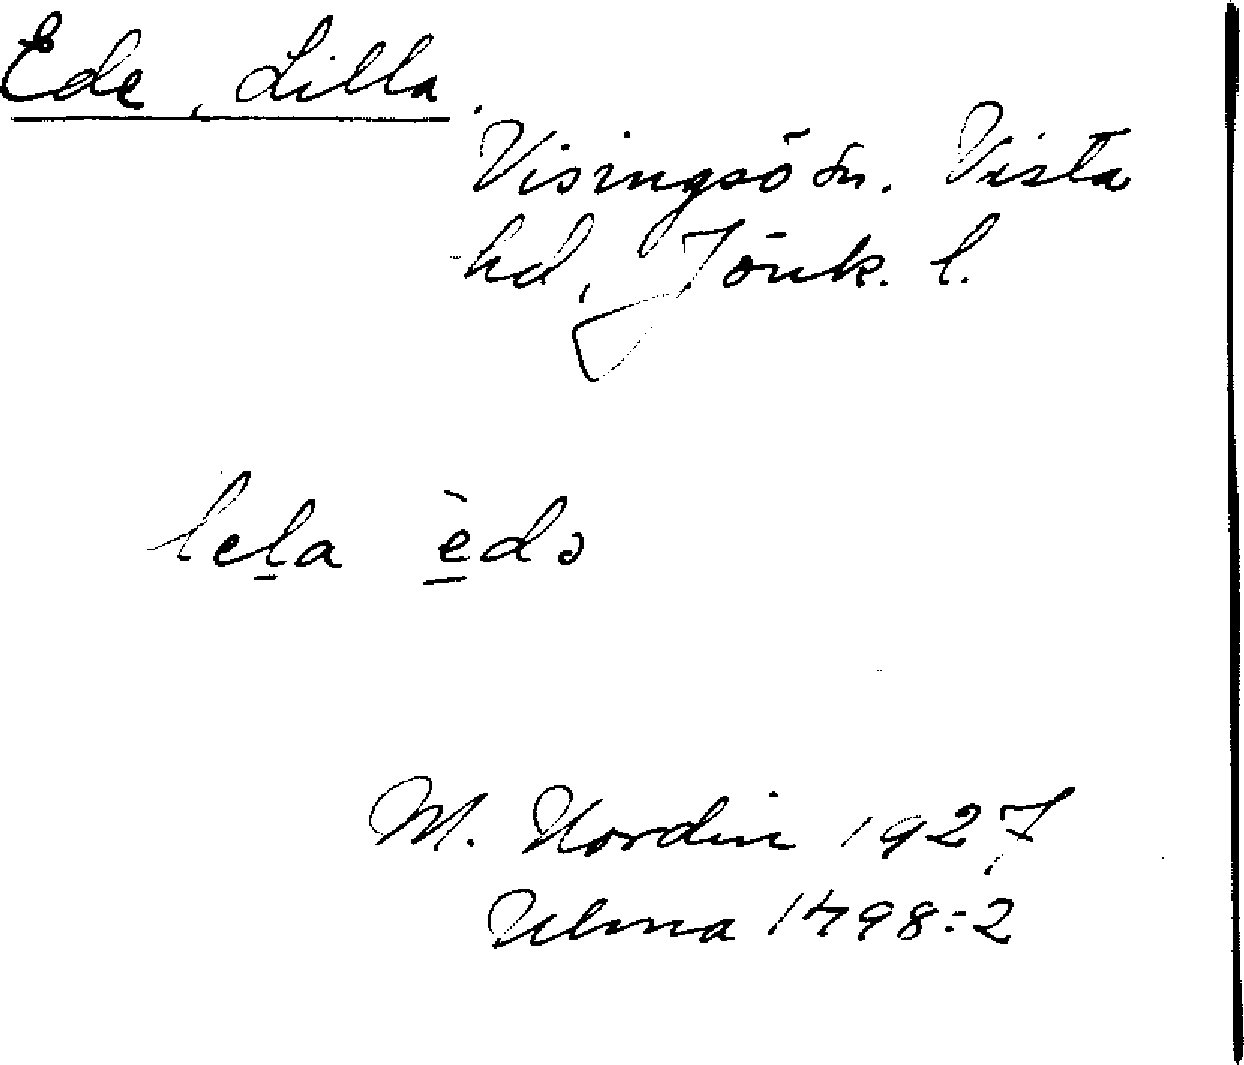 Ede, Lilla.
Visingsö sn. Vista
hd, Jönk. l.
lel̠a è̠də
M. Nordin 1927
Ulma 1498:2